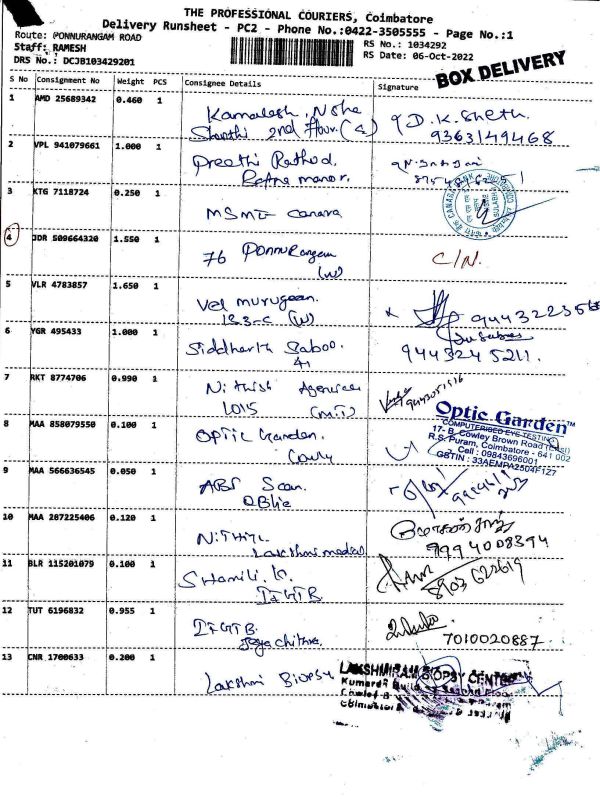 THE PROFESSIONAL COURIERS, Coimbatore
Delivery Runsheet - PC2 - Phone No.:0422-3505555 - Page No.:1
Route: PONNURANGAM ROAD
RS No.: 1034292
Staff: RAMESH
RS Date: 06-Oct-2022
DRS No.: DCJB103429201
BOX DELIVERY
S No Consignment No Weight PCS Consignee Details Signature
1 AMD 25689342 0.460 1
Kamalesh, Nsha
Shanthi 2nd flour. (4)
D.K. Sheth
9363149468
2 VPL 941079661 1.000 1
Preethi Rathod.
Ratna manor.
3 KTG 7118724 0.250 1
MSME Canara
CANARA BANK
4 JDR 509664320 1.550 1
76 PONNURangam
(W)
C/N.
5 VLR 4783857 1.650 1
Vel murugaan.
183-C (W)
6 YGR 495433 1.000 1
Siddharth Saboo.
41
9443245211.
7 RKT 8774706 0.990 1
Nithish Agencies
1015
8 MAA 858079550 0.100 1
OPTIC Garden.
Cowly
Optic Garden TM
COMPUTERISED EYE TESTING
17- B, Cowley Brown Road (East)
R.S. Puram, Coimbatore - 641 002
Cell : 09843696001
GSTIN : 33AEMPA2504F1Z7
9 MAA 566636545 0.050 1
ABS Scan.
10 MAA 287225406 0.120 1
Nithil
Lakshmi medical
9994008394
11 BLR 115201079 0.100 1
Shamili. K.
IFGTB
8903 622619
12 TUT 6196832 0.955 1
IFGTB.
Jaya Chitra.
7010020887
13 CNR 1700633 0.200 1
Lakshmi Biopsy
LAKSHMIRAM BIOPSY CENTRE